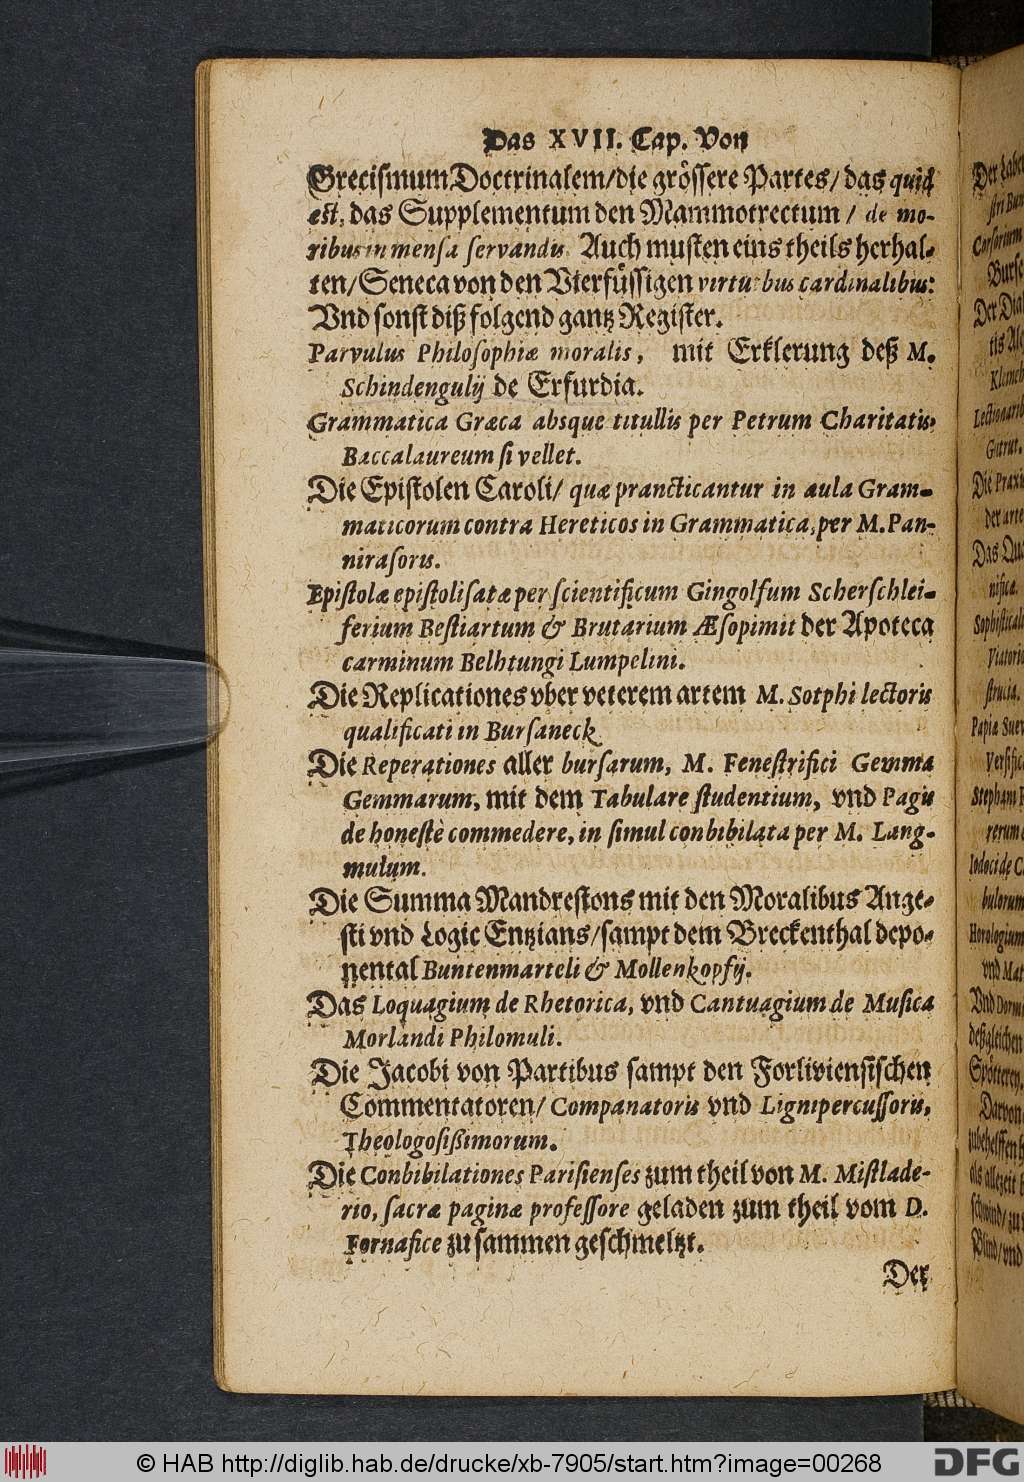 Das XVII. Cap. Von
Grecismum Doctrinalem/ die grössere Partes/ das quid
est, das Supplementum den Mammotrectum / de mo-
ribus in mensa servandis. Auch musten eins theils herhal-
ten/ Seneca von den Vierfüssigen virtutibus cardinalibus:
Vnd sonst diß folgend gantz Register.
Parvulus Philosophiæ moralis, mit Erklerung deß M.
Schindengulij de Erfurdia.
Grammatica Græca absque titullis per Petrum Charitatis,
Baccalaureum si vellet.
Die Epistolen Caroli/ quæ prancticantur in aula Gram-
maticorum contra Hereticos in Grammatica, per M. Pan-
nirasoris.
Epistolæ epistolisatæ per scientificum Gingolfum Scherschlei-
ferium Bestiartum & Brutarium Æsopimit der Apoteca
carminum Belhtungi Lumpelini.
Die Replicationes vber veterem artem M. Sotphi lectoris
qualificati in Bursaneck
Die Reperationes aller bursarum, M. Fenestrifici Gemma
Gemmarum, mit dem Tabulare studentium, vnd Pagis
de honestè commedere, in simul conbibilata per M. Lang-
mulum.
Die Summa Mandrestons mit den Moralibus Ange-
sti vnd Logic Entzians/ sampt dem Breckenthal depo-
nental Buntenmarteli & Mollenkopfij.
Das Loquagium de Rhetorica, vnd Cantuagium de Musica
Morlandi Philomuli.
Die Jacobi von Partibus sampt den Forliviensischen
Commentatoren/ Companatoris vnd Lignipercussoris,
Theologosißimorum.
Die Conbibilationes Parisienses zum theil von M. Mistlade-
rio, sacræ paginæ professore geladen zum theil vom D.
Fornafice zusammen geschmeltzt.
Der
© HAB http://diglib.hab.de/drucke/xb-7905/start.htm?image=00268
DFG